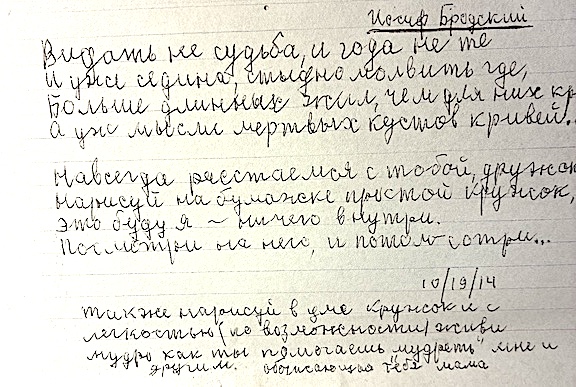 Иосиф Бродский
Видать не судьба, и года не те
И уже седина, стыдно молвить где,
Больше длинных жил, чем для них кр
А уж мысли мертвых кустов кривей..
Навсегда расстаемся с тобой, дружок
Нарисуй на бумажке простой кружок,
Это буду я ~ ничего внутри.
Посмотри на него, и потом сотри...
10/19/14
также нарисуй в уме кружок и с
легкостью (по возможности) живи
мудро как ты помогаешь "мудреть" мне и
другим. обожающая тебя мама